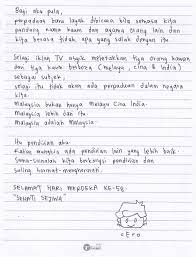 Bagi aku pula,
perpaduan baru layak dibicara bila semua kita
pandang nama kaum dan agama orang lain dan
kita berasa tidak apa yang salah dengan itu
Selagi iklan TV asyik meletakkan tiga orang kawan
dari tiga kaum berbeza (melayu, cina & india)
sebagai subjek,
selagi itu tidak akan ada perpaduan dalam negara
kita.
Malaysia bukan hanya Melayu Cina India.
Malaysia lebih dari itu.
Malaysia adalah Malaysia.
Itu pendirian aku.
Kalian mungkin ada pendirian lain yang lebih baik.
Sama-samalah kita berkongsi pendirian dan
saling hormat-menghormati.
SELAMAT HARI MERDEKA KE-58
"SEHATI SEJIWA"
cEro